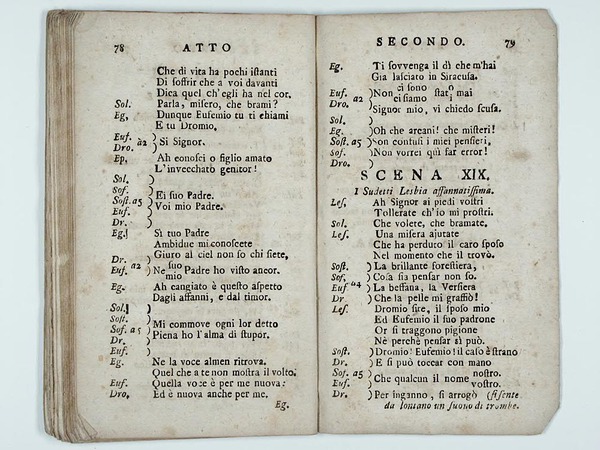 78 ATTO
Che di vita ha pochi iſtanti
Di ſoffrir che a voi davanti
Dica quel ch'egli ha nel cor.
Sol. Parla, miſero, che brami?
Eg, Dunque Eufemio tu ti chiami
E tu Dromio,
Euf. )
Dro. ) a2 Si Signor.
Ep, Ah eonoſci o figlio amato
L'invecchato genitor!
Sol. )
Sof. ) Ei ſuo Padre.
Soſt. a5 ) Voi mio Padre.
Euf. )
Dr. )
Eg. Sì tuo Padre
Ambidue mi conoſcete
Giuro al ciel non ſo chi ſiete,
Dr. )
Euf. a2 ) Ne ſuo mio Padre ho viſto ancor.
Eg. Ah cangiato è queſto aſpetto
Dagli affanni, e dal timor.
Sol. )
Soſt. )
Sof. a5 ) Mi commove ogni lor detto
Dr. ) Piena ho l'alma di ſtupor.
Euf. )
Eg. Ne la voce almen ritrova.
Quel che a te non moſtra il volto.
Euf. Quella voce è per me nuova:
Dro, Ed è nuova anche per me.
Eg.
SECONDO. 79
Eg. Ti ſovvenga il dì che m'hai
Già laſciato in Siracuſa.
Euf. )
Dro. a2 ) Non ci ſono ci ſiamo ſtat o i mai
)Signor mio, vi chiedo ſcuſa.
Sol. )
Eg. )Oh che arcani! che miſteri!
Soſt. a5 )Son confuſi i miei penſieri,
Sof. )Non vorrei quì far error!
SCENA XIX.
I Sudetti Lesbia affannatiſſima.
Leſ, Ah Signor ai piedi voſtri
Tollerate ch'io mi proſtri.
Sol. Che volete, che bramate.
Leſ. Una miſera ajutate
Che ha perduto il caro ſpoſo
Nel momento che il trovò.
Soſt. ) La brillante foreſtiera,
Sof, ) Coſa ſia penſar non ſo.
Euf a4 ) La beffana, la Verſiera
Dr ) Che la pelle mi graffiò!
Leſ. Dromio ſire, il ſpoſo mio
Ed Eufemio il ſuo padrone
Or ſi traggono pigione
Nè perchè penſar ſi può.
Soſt. ) Dromio! Eufemio! il caſo è ſtrano
Dr. ) E ſi può toccar con mano
Sof. a5 ) Che qualcun il nome noſtro.
Euf. ) voſtro.
Dr. )Per inganno, ſi arrogò (ſi ſente
da lontano un ſuono di trombe.